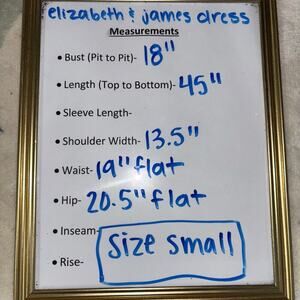 elizabeth & james dress
Measurements
• Bust (Pit to Pit)- 18"
• Length (Top to Bottom)- 45"
• Sleeve Length-
• Shoulder Width- 13.5"
• Waist- 19" flat
• Hip- 20.5" flat
• Inseam-
size small
• Rise-